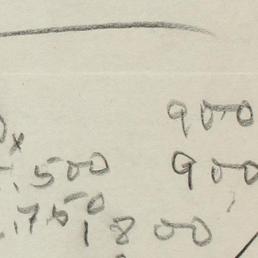 900
.500 900
.750
1800